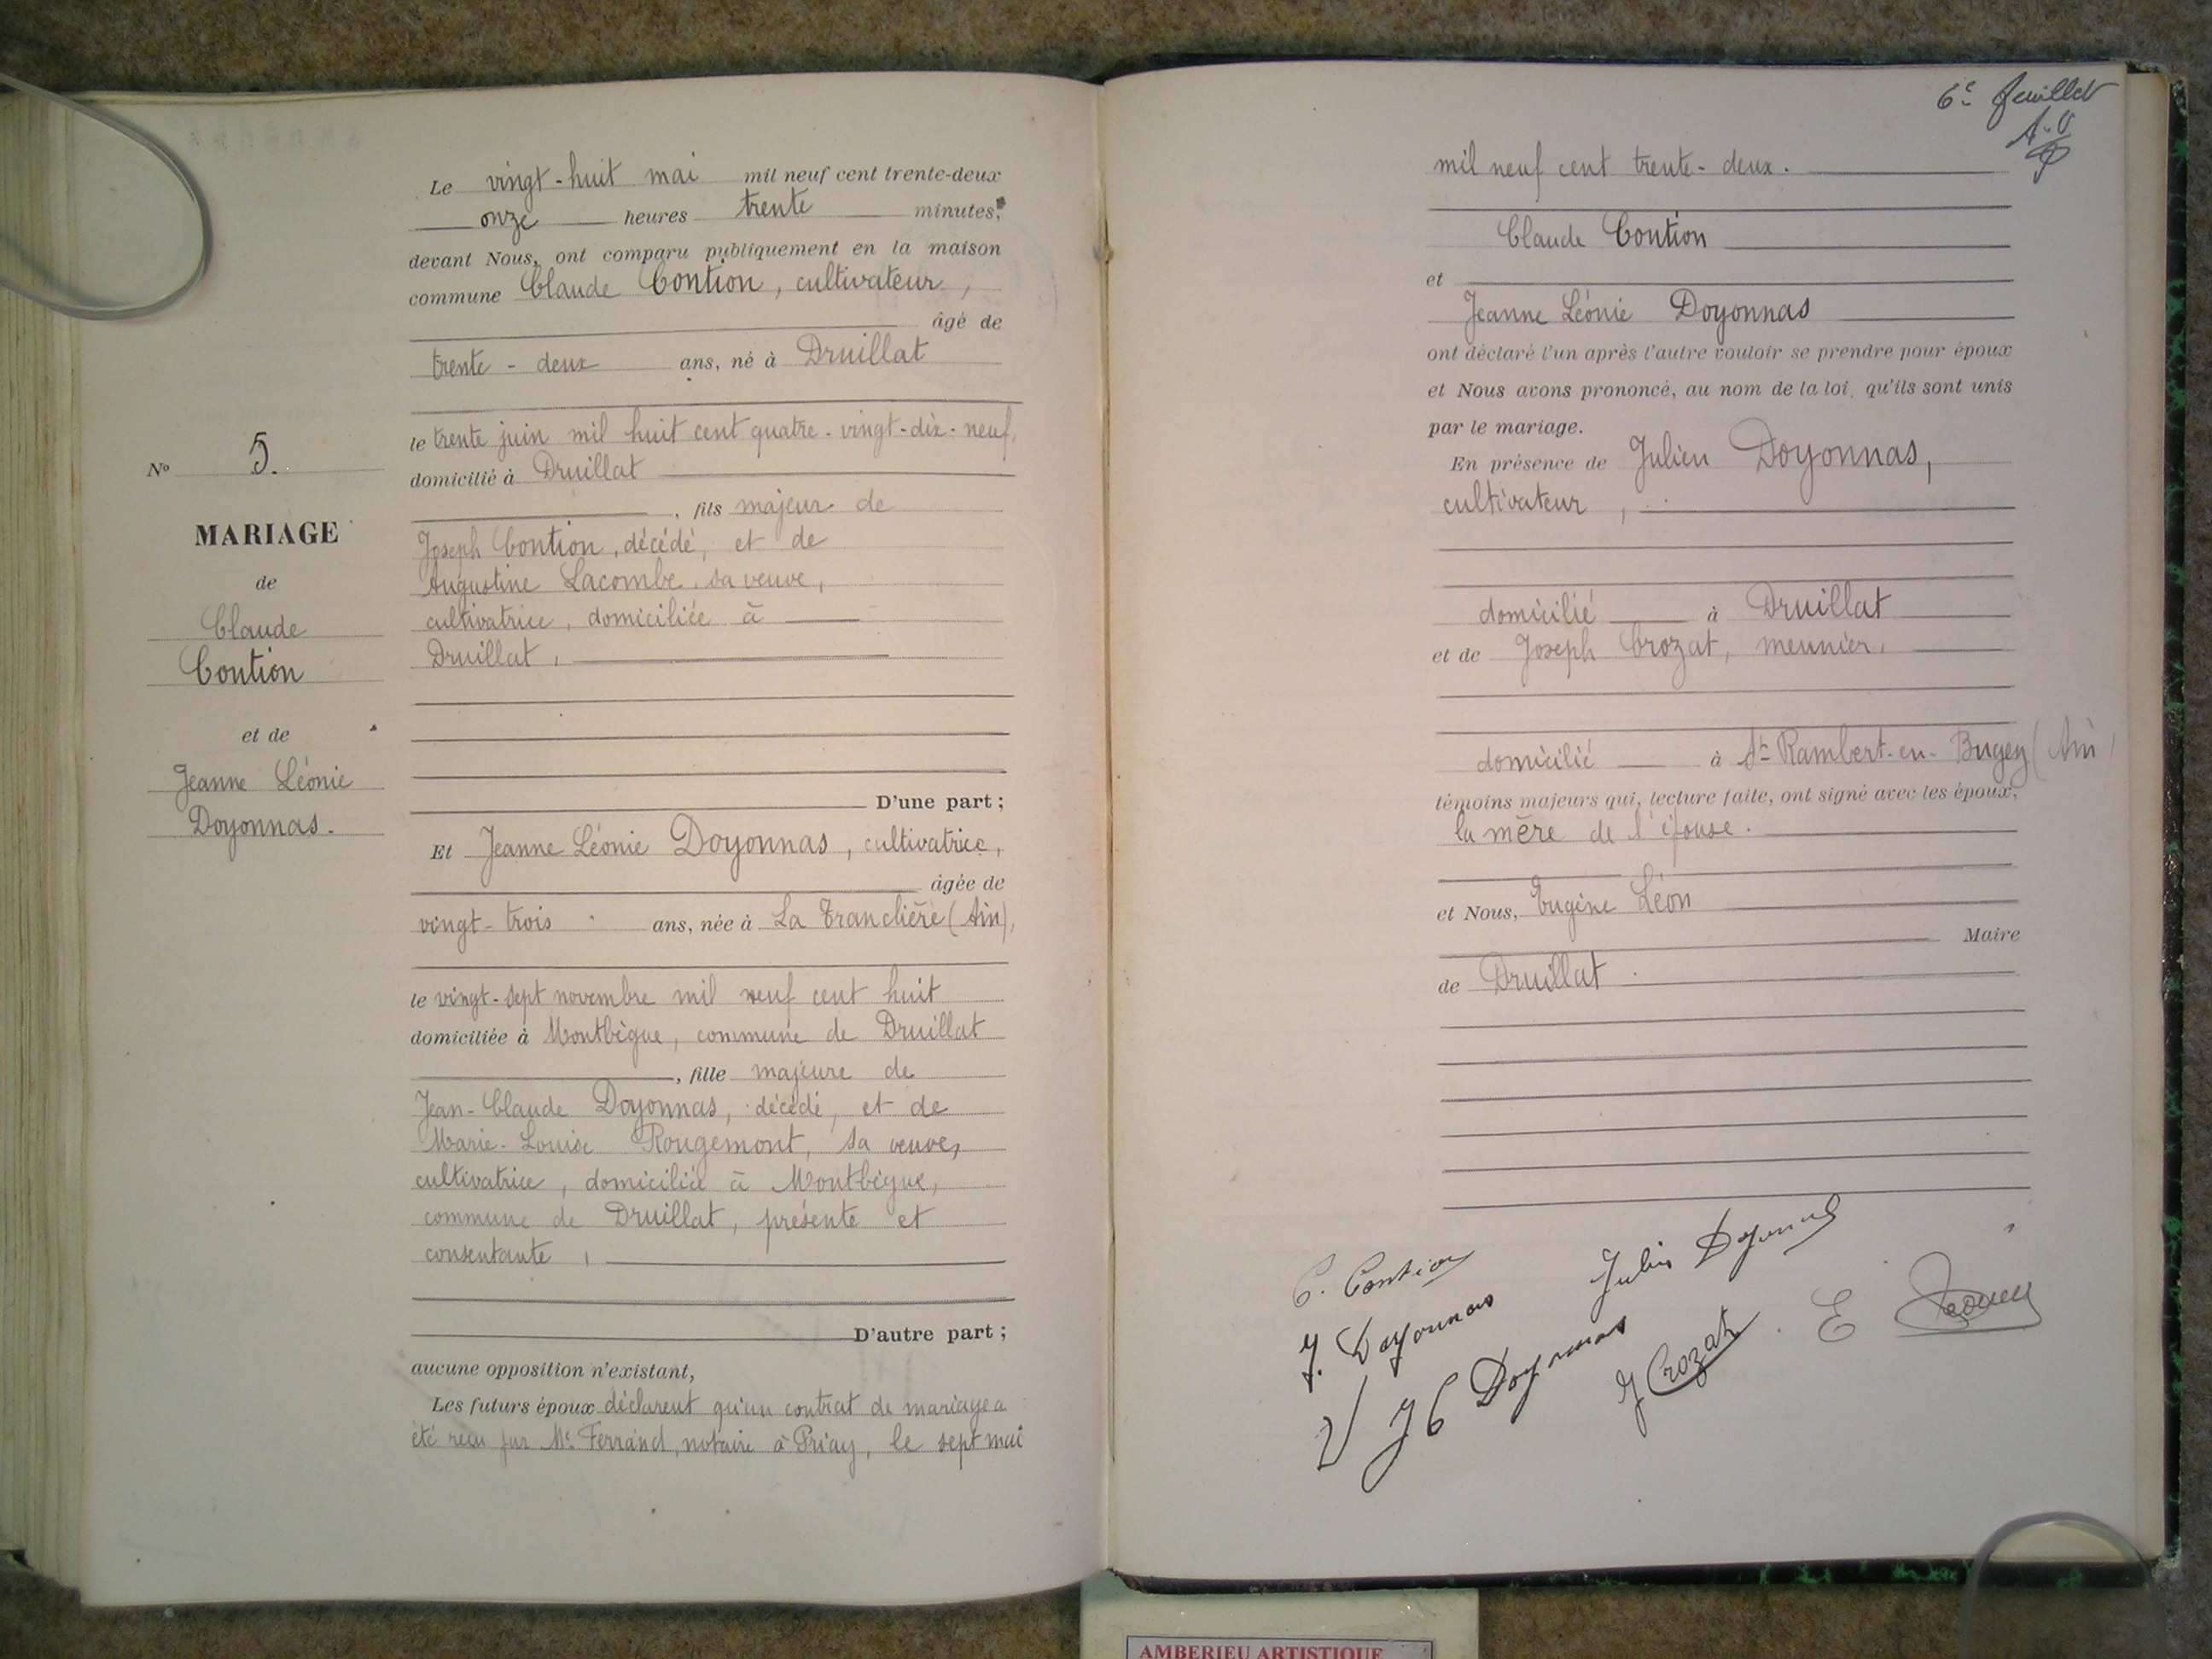 Le vingt-huit mai mil neuf cent trente-deux
onze heures trente minutes,
devant Nous, ont comparu publiquement en la maison
commune Claude Contion, cultivateur,
âgé de
trente-deux ans, né à Druillat
le trente juin mil huit cent quatre-vingt-dix-neuf,
domicilié à Druillat
, fils majeur de
Joseph Contion, décédé, et de
Augustine Lacombe, sa veuve,
cultivatrice, domiciliée à
Druillat,
D'une part;
Et Jeanne Léonie Doyonnas, cultivatrice,
âgée de
vingt-trois ans, née à La Tranclière (Ain),
le vingt-sept novembre mil neuf cent huit
domiciliée à Montbègue, commune de Druillat
, fille majeure de
Jean-Claude Doyonnas, décédé, et de
Marie-Louise Rougemont, sa veuve,
cultivatrice, domiciliée à Montbègue,
commune de Druillat, présente et
consentante,
D'autre part;
aucune opposition n'existant,
Les futurs époux déclarent qu'un contrat de mariage a
été reçu par Me Ferrand, notaire à Priay, le sept mai
No 5.
MARIAGE
de
Claude
Contion
et de
Jeanne Léonie
Doyonnas.
6e feuillet
mil neuf cent trente-deux.
Claude Contion
et
Jeanne Léonie Doyonnas
ont déclaré l'un après l'autre vouloir se prendre pour époux
et Nous avons prononcé, au nom de la loi, qu'ils sont unis
par le mariage.
En présence de Julien Doyonnas,
cultivateur,
domicilié à Druillat
et de Joseph Crozat, meunier,
domicilié à St Rambert-en-Bugey (Ain)
témoins majeurs qui, lecture faite, ont signé avec les époux,
la mère de l'épouse.
et Nous, Eugène Léon
Maire
de Druillat.
C. Contion
Julien Doyonnas
J. Doyonnas
V J C Doyonnas
J Crozat
E
AMBERIEU ARTISTIQUE